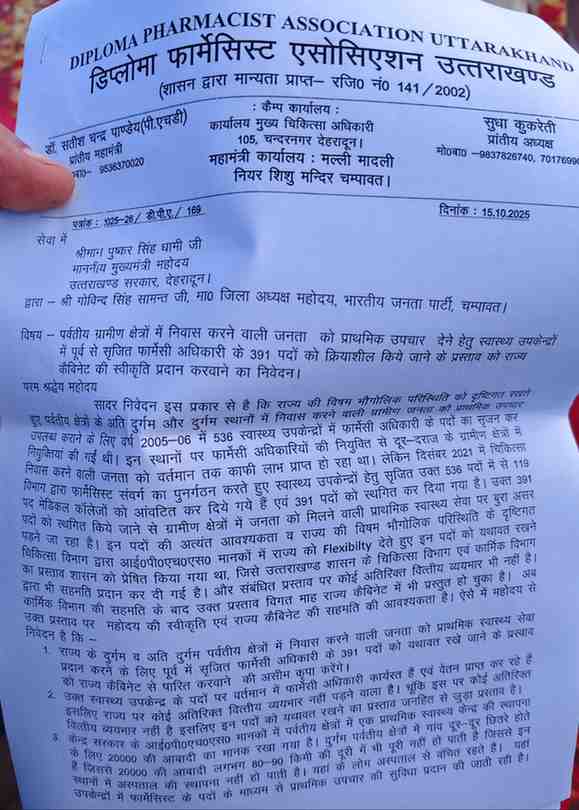 DIPLOMA PHARMACIST ASSOCIATION UTTARAKHAND
डिप्लोमा फार्मेसिस्ट एसोसिएशन उत्तराखण्ड
(शासन द्वारा मान्यता प्राप्त– रजि0 नं0 141/2002)
डॉ. सतीश चन्द्र पाण्डेय(पी.एचडी)
प्रांतीय महामंत्री
मो0बा0– 9536370020
: कैम्प कार्यालय :
कार्यालय मुख्य चिकित्सा अधिकारी
105, चन्दरनगर देहरादून।
महामंत्री कार्यालय : मल्ली मादली
नियर शिशु मन्दिर चम्पावत।
सुधा कुकरेती
प्रांतीय अध्यक्ष
मो0बा0 –9837826740, 70176990
पत्रांक : 2025–26/ डी.पी.ए./ 169
दिनांक : 15.10.2025
सेवा में
श्रीमान पुष्कर सिंह धामी जी
माननीय मुख्यमंत्री महोदय
उत्तराखण्ड सरकार, देहरादून।
द्वारा – श्री गोविन्द सिंह सामन्त जी, मा0 जिला अध्यक्ष महोदय, भारतीय जनता पार्टी, चम्पावत।
विषय – पर्वतीय ग्रामीण क्षेत्रों में निवास करने वाली जनता को प्राथमिक उपचार देने हेतु स्वास्थ्य उपकेन्द्रों
में पूर्व से सृजित फार्मेसी अधिकारी के 391 पदों को क्रियाशील किये जाने के प्रस्ताव को राज्य
कैबिनेट की स्वीकृति प्रदान करवाने का निवेदन।
परम श्रद्धेय महोदय
सादर निवेदन इस प्रकार से है कि राज्य की विषम भौगोलिक परिस्थिति को दृष्टिगत रखते
हुए पर्वतीय क्षेत्रों के अति दुर्गम और दुर्गम स्थानों में निवास करने वाली ग्रामीण जनता को प्राथमिक उपचार
उपलब्ध कराने के लिए वर्ष 2005–06 में 536 स्वास्थ्य उपकेन्द्रों में फार्मेसी अधिकारी के पदों का सृजन कर
नियुक्तियां की गई थी। इन स्थानों पर फार्मेसी अधिकारियों की नियुक्ति से दूर–दराज के ग्रामीण क्षेत्रों में
निवास करने वाली जनता को वर्तमान तक काफी लाभ प्राप्त हो रहा था। लेकिन दिसंबर 2021 में चिकित्सा
विभाग द्वारा फार्मेसिस्ट संवर्ग का पुनर्गठन करते हुए स्वास्थ्य उपकेन्द्रों हेतु सृजित उक्त 536 पदों में से 119
पद मेडिकल कॉलेजों को आवंटित कर दिये गये हैं एवं 391 पदों को स्थगित कर दिया गया है। उक्त 391
पदों को स्थगित किये जाने से ग्रामीण क्षेत्रों में जनता को मिलने वाली प्राथमिक स्वास्थ्य सेवा पर बुरा असर
पड़ने जा रहा है। इन पदों की अत्यंत आवश्यकता व राज्य की विषम भौगोलिक परिस्थिति के दृष्टिगत
चिकित्सा विभाग द्वारा आई0पी0एच0एस0 मानकों में राज्य को Flexibilty देते हुए इन पदों को यथावत रखने
का प्रस्ताव शासन को प्रेषित किया गया था, जिसे उत्तराखण्ड शासन के चिकित्सा विभाग एवं कार्मिक विभाग
द्वारा भी सहमति प्रदान कर दी गई है। और संबंधित प्रस्ताव पर कोई अतिरिक्त वित्तीय व्ययभार भी नहीं है।
कार्मिक विभाग की सहमति के बाद उक्त प्रस्ताव विगत माह राज्य कैबिनेट में भी प्रस्तुत हो चुका है। अब
उक्त प्रस्ताव पर महोदय की स्वीकृति एवं राज्य कैबिनेट की सहमति की आवश्यकता है। ऐसे में महोदय से
निवेदन है कि –
1. राज्य के दुर्गम व अति दुर्गम पर्वतीय क्षेत्रों में निवास करने वाली जनता को प्राथमिक स्वास्थ्य सेवा
प्रदान करने के लिए पूर्व में सृजित फार्मेसी अधिकारी के 391 पदों को यथावत रखे जाने के प्रस्ताव
को राज्य कैबिनेट से पारित करवाने की असीम कृपा करेंगे।
2. उक्त स्वास्थ्य उपकेन्द्र के पदों पर वर्तमान में फार्मेसी अधिकारी कार्यरत हैं एवं वेतन प्राप्त कर रहे हैं
इसलिए राज्य पर कोई अतिरिक्त वित्तीय व्ययभार नहीं पड़ने वाला है। चूंकि इस पर कोई अतिरिक्त
वित्तीय व्ययभार नहीं है इसलिए इन पदों को यथावत रखने का प्रस्ताव जनहित से जुड़ा प्रस्ताव है।
3. केन्द्र सरकार के आई0पी0एच0एस0 मानकों में पर्वतीय क्षेत्रों में एक प्राथमिक स्वास्थ्य केन्द्र की स्थापना
के लिए 20000 की आबादी का मानक रखा गया है। दुर्गम पर्वतीय क्षेत्रों में गांव दूर–दूर छितरे होते
है जिससे 20000 की आबादी लगभग 80–90 किमी की दूरी में भी पूरी नहीं हो पाती है जिससे इन
स्थानों में अस्पताल की स्थापना नहीं हो पाती है। यहां के लोग अस्पताल से वंचित रहते है। यहां
उपकेन्द्रों में फार्मेसिस्ट के पदों के माध्यम से प्राथमिक उपचार की सुविधा प्रदान की जाती रही है।